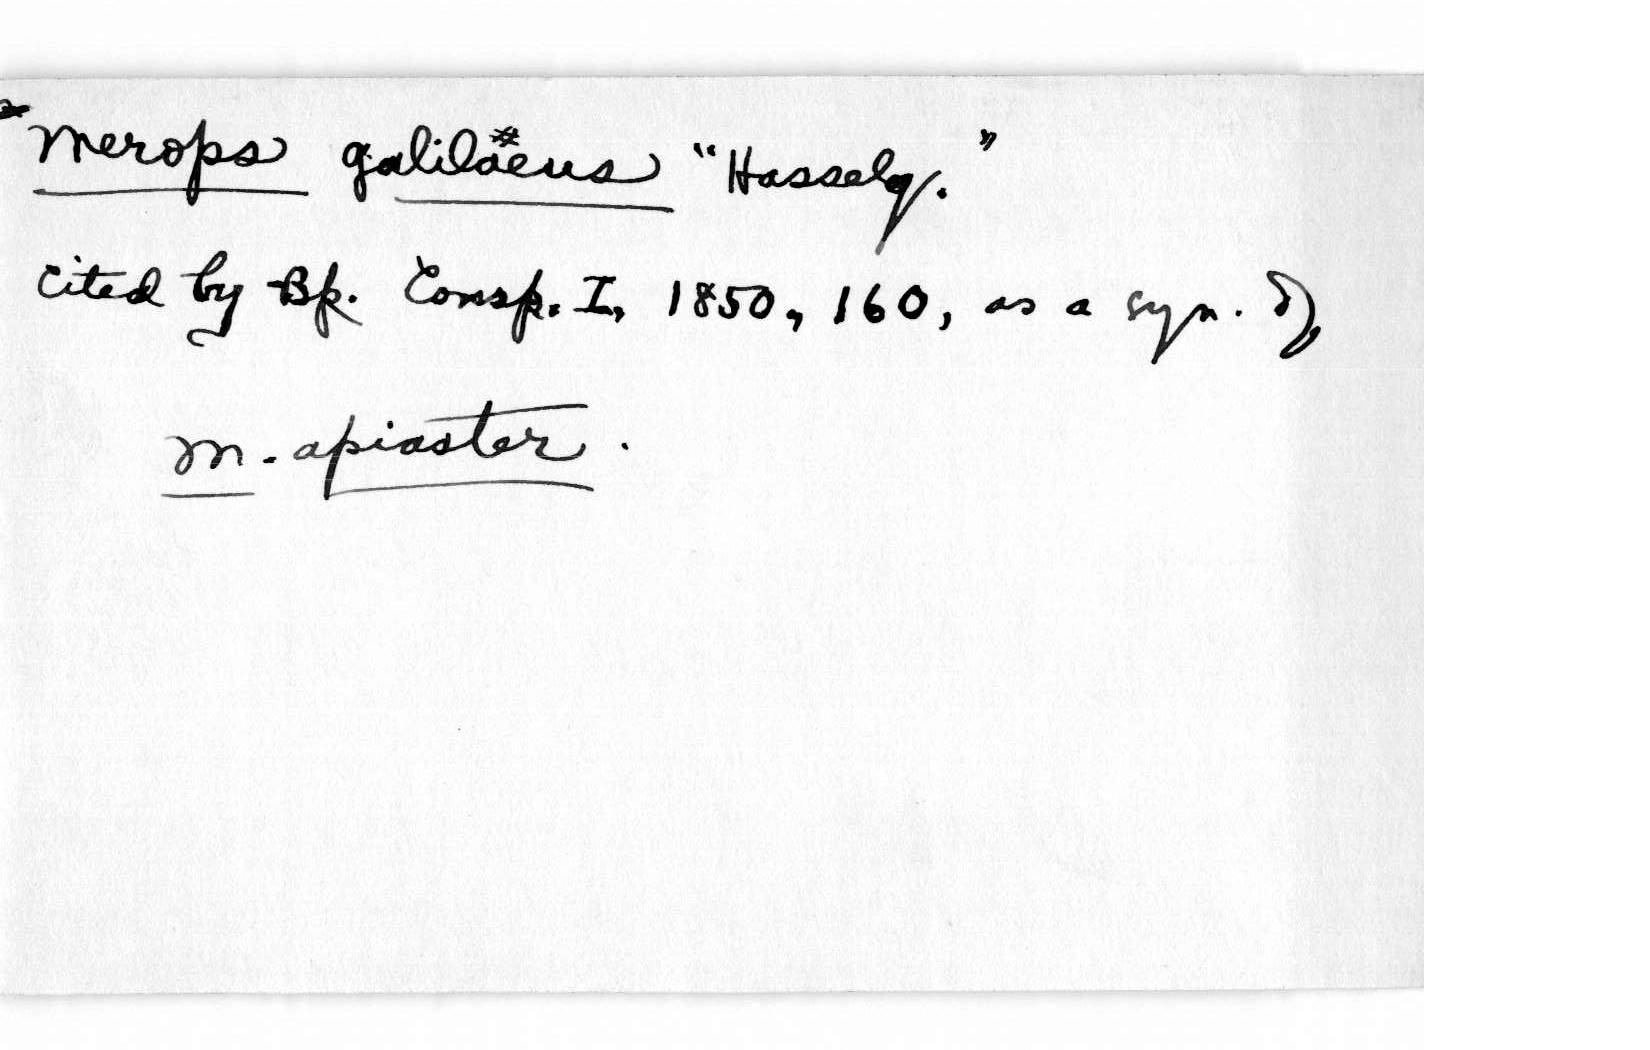 Merops galilaeus "Hasselq."
Cited by Bp. Consp. I, 1850, 160, as a syn. of
M. apiaster.